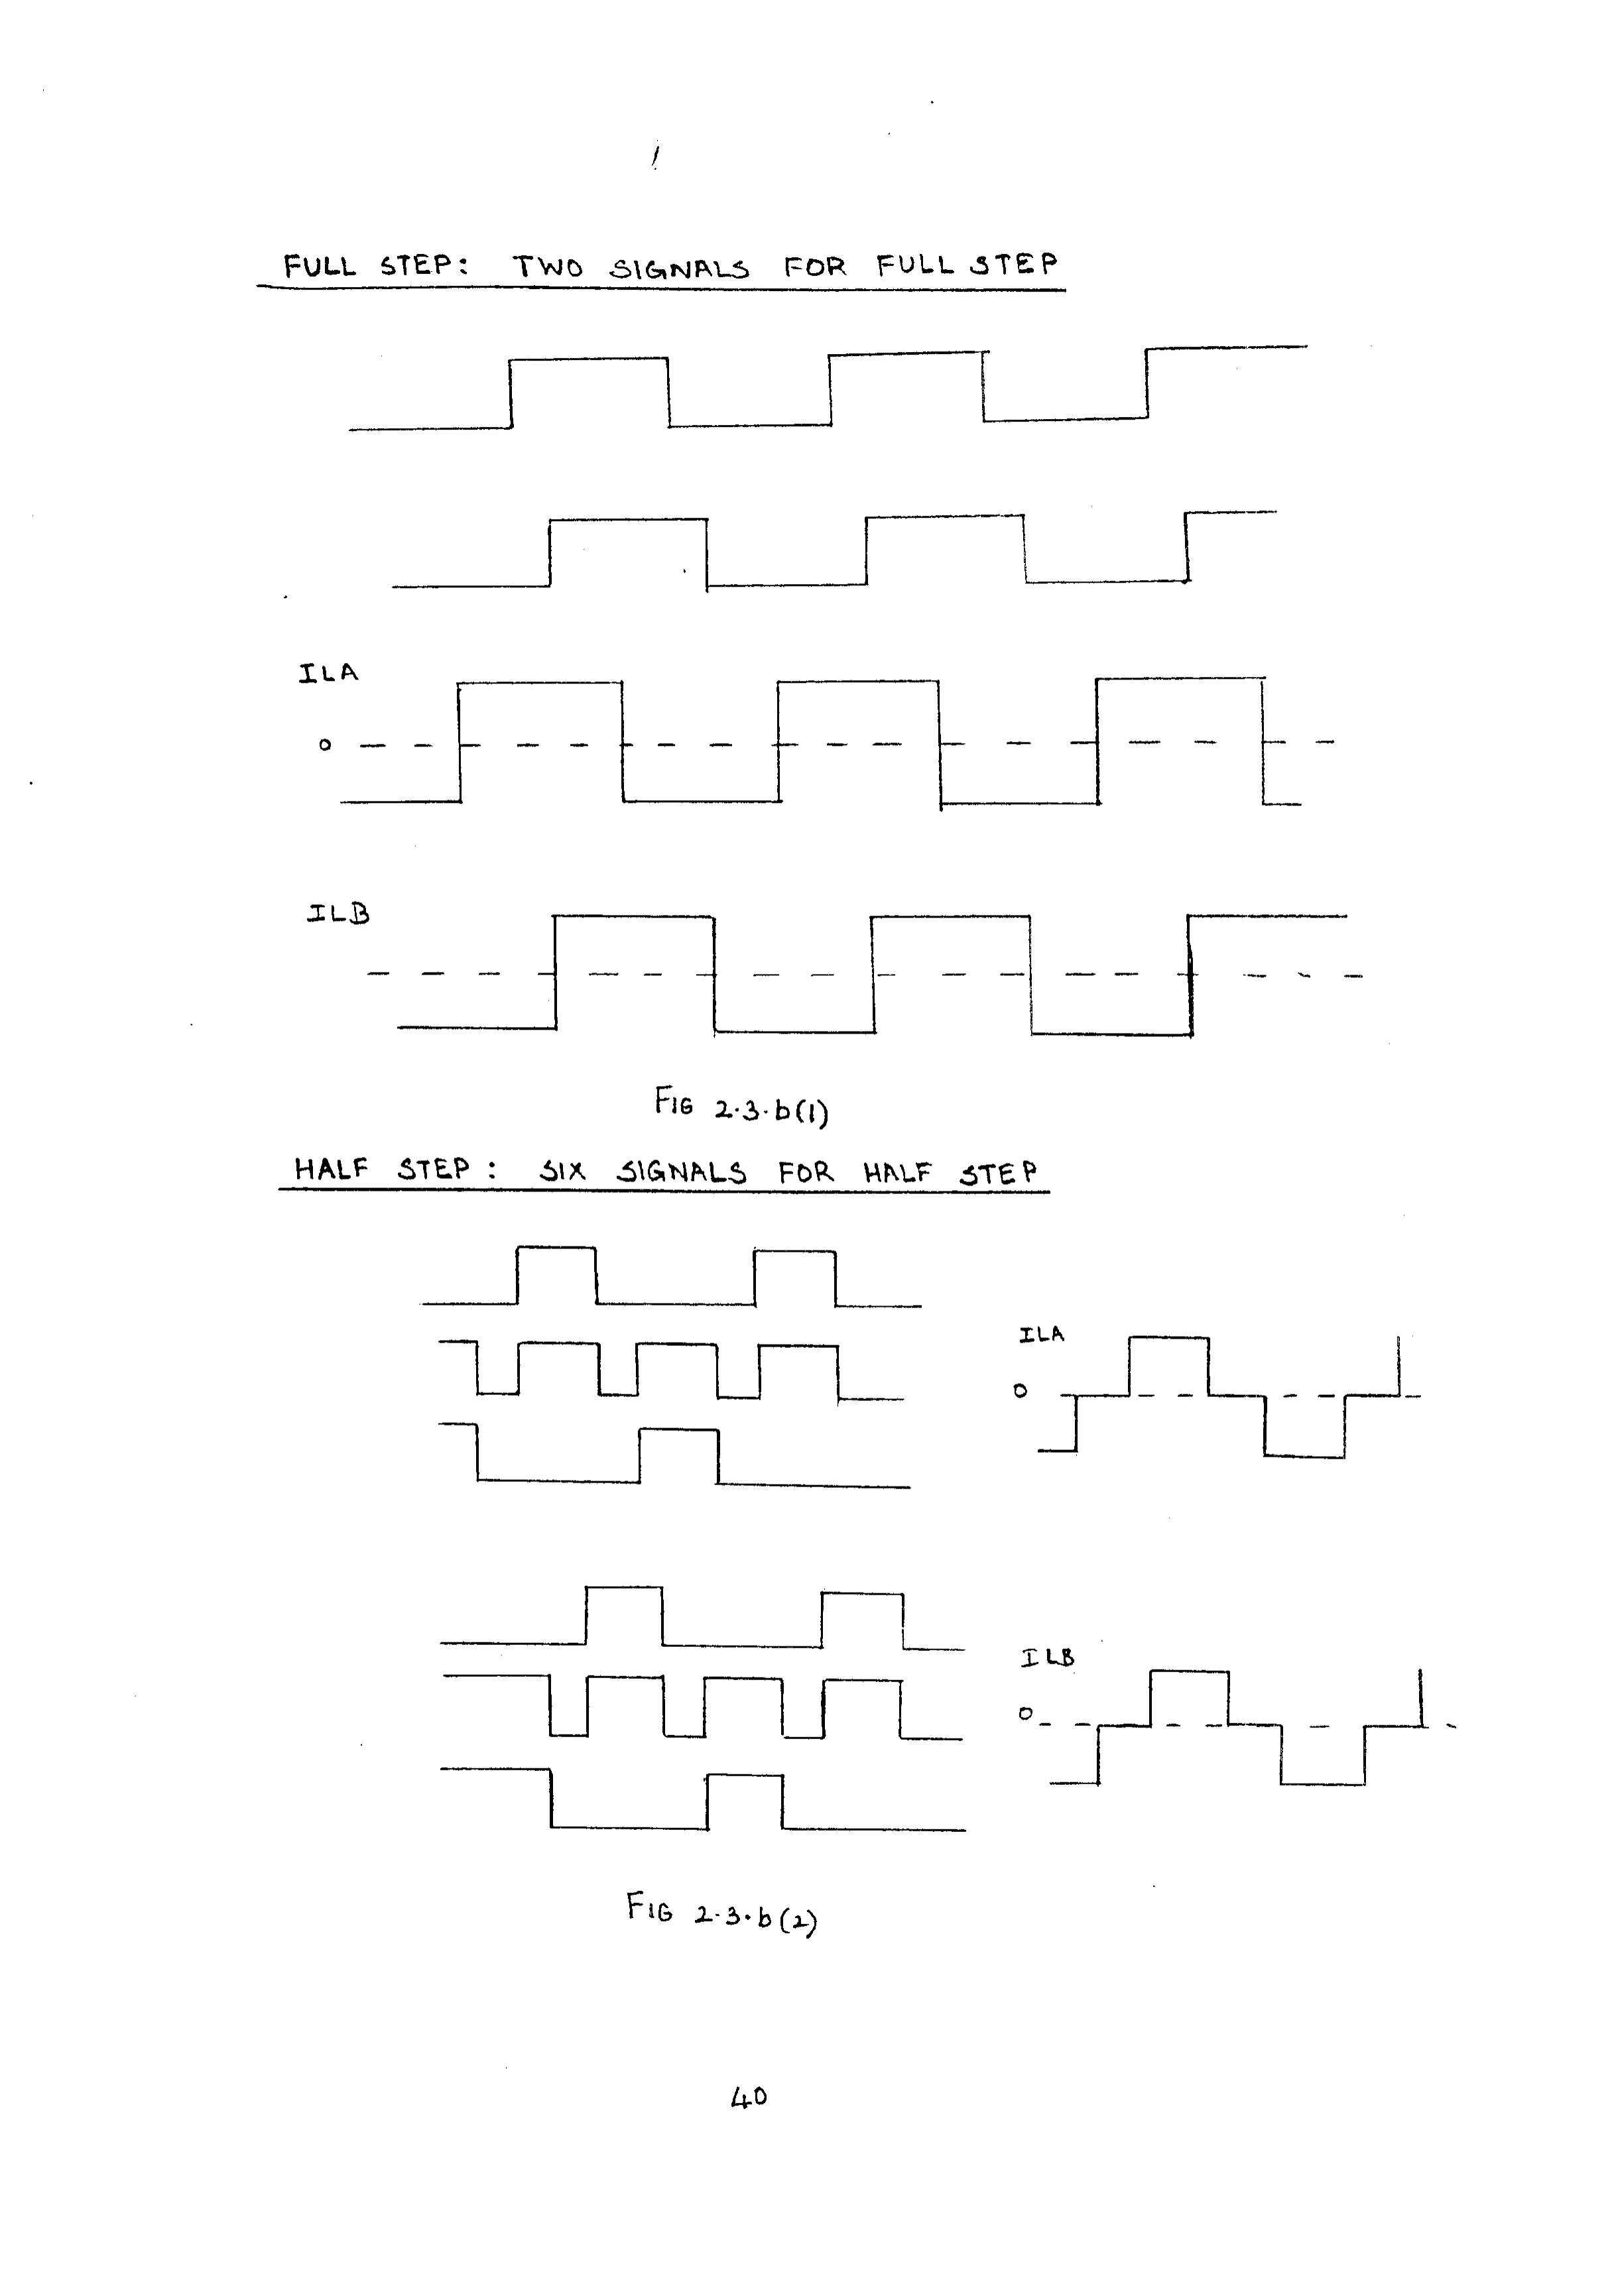 FULL STEP: TWO SIGNALS FOR FULL STEP
ILA
0
ILB
FIG 2.3.b(1)
HALF STEP: SIX SIGNALS FOR HALF STEP
ILA
0
ILB
0
FIG 2.3.b(2)
40